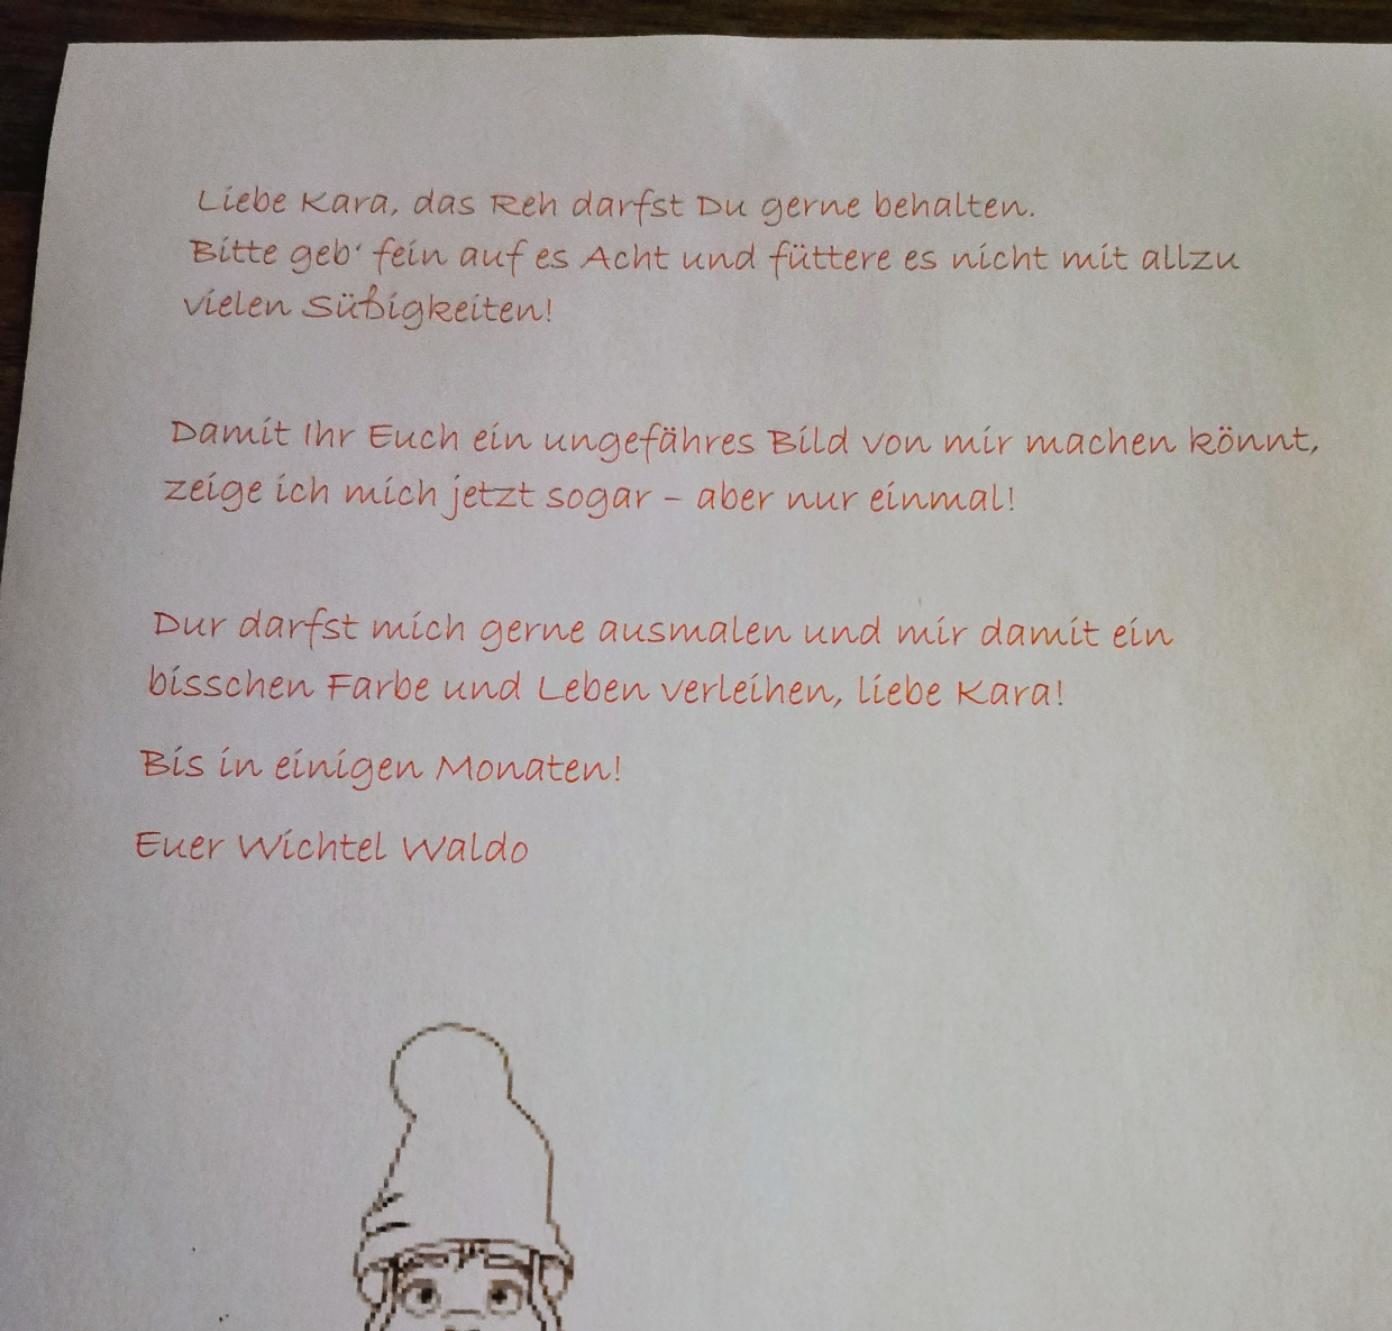 Liebe Kara, das Reh darfst Du gerne behalten.
Bitte geb' fein auf es Acht und füttere es nicht mit allzu
vielen Süßigkeiten!
Damit Ihr Euch ein ungefähres Bild von mir machen könnt,
zeige ich mich jetzt sogar – aber nur einmal!
Dur darfst mich gerne ausmalen und mir damit ein
bisschen Farbe und Leben verleihen, liebe Kara!
Bis in einigen Monaten!
Euer Wichtel Waldo